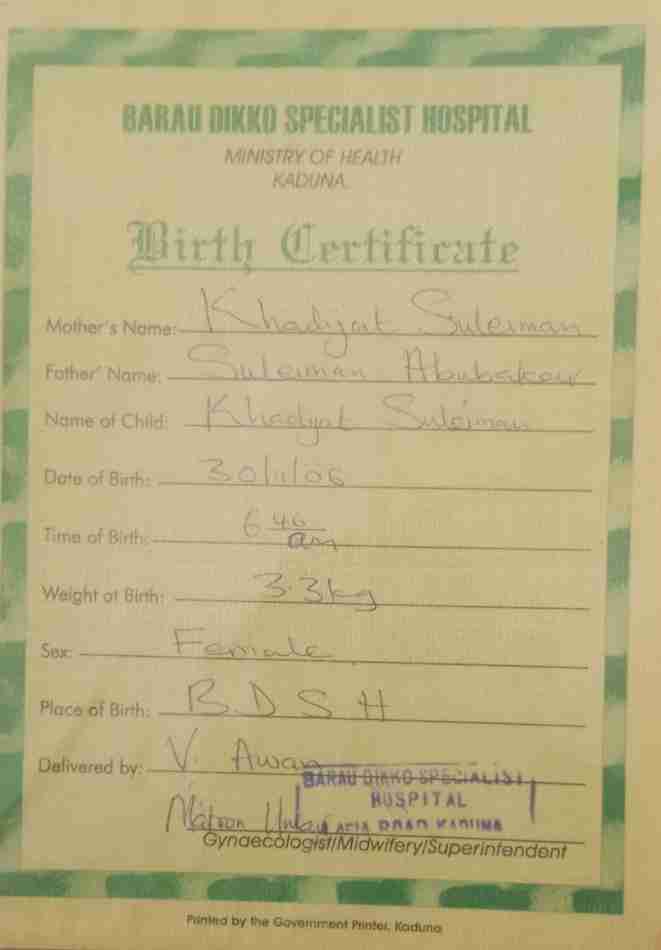 BARAU DIKKO SPECIALIST HOSPITAL
MINISTRY OF HEALTH
KADUNA.
Birth Certificate
Mother's Name: Khadijat Suleiman
Father' Name: Suleiman Abubakar
Name of Child: Khadijat Suleiman
Date of Birth: 30/11/06
Time of Birth: 6 40 am
Weight at Birth: 3.3kg
Sex: Female
Place of Birth: B.D S H
Delivered by: V. Awan
BARAU DIKKO SPECIALIST
HOSPITAL
Matron ROAD KADUNA
Gynaecologist/Midwifery/Superintendent
Printed by the Government Printer, Kaduna